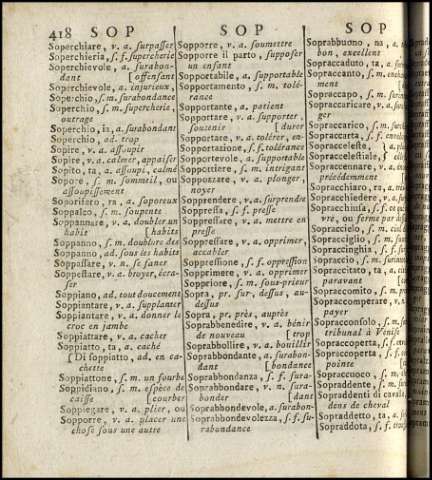 418 SOP
Soperchiare, v. a. surpasser
Soperchieria, s. f. supercherie
Soperchievole, a. surabon-
dant [offensant
Soperchievole, a. injurieux,
Soperchio, s. m. surabondance
Soperchio, s. m. supercherie,
outrage
Soperchio, ia, a. surabondant
Soperchio, ad. trop
Sopire, v. a. assoupir
Sopire, v. a. calmer, appaiser
Sopito, ta, a. assoupi, calmé
Sopore, s. m. sommeil, ou
assoupissement
Soporifero, ra, a. soporeux
Soppalco, s. m. soupente
Soppannare, v. a. doubler un
habit [habits
Soppanno, s. m. doublure des
Soppanno, ad. sous les habits
Soppassare, v. n. se faner
Soppestare, v. a. broyer, écra-
ser
Soppiano, ad. tout doucement
Soppiantare, v. a. supplanter
Soppiantare, v. a. donner le
croc en jambe
Soppiattare, v. a. cacher
Soppiatto, ta, a. caché
Di soppiatto, ad. en ca-
chette
Soppiattone, s. m. un fourbe
Soppidiano, s. m. espèce de
caisse [courber
Soppiegare, v. a. plier, ou
Sopporre, v. a. placer une
chose sous une autre
SOP
Sopporre, v. a. soumettre
Sopporre il parto, supposer
un enfant
Sopportabile, a. supportable
Sopportamento, s. m. tolé-
rance
Sopportante, a. patient
Sopportare, v. a. supporter,
soutenir [durer
Sopportare, v. a. tolérer, en-
Sopportazione, s. f. tolérance
Sopportevole, a. supportable
Soppottiere, s. m. intrigant
Soppozzare, v. a. plonger,
noyer
Sopprendere, v. a. surprendre
Soppressa, s. f. presse
Soppressare, v. a. mettre en
presse
Soppressare, v. a. opprimer,
accabler
Soppressione, s. f. oppression
Sopprimere, v. a. opprimer
Soppriore, s. m. sous-prieur
Sopra, pr. sur, dessus, au-
dessus
Sopra, pr. près, auprès
Soprabbenedire, v. a. bénir
de nouveau [trop
Soprabbollire, v. a. bouillir
Soprabbondante, a. surabon-
dant [bondance
Soprabbondanza, s. f. sura-
Soprabbondare, v. n. sura-
bonder [dant
Soprabbondevole, a. surabon-
Soprabbondevolezza, s. f. su-
rabondance
SOP
Soprabbuono, na, a.
bon, excellent
Sopraccaduto, ta, a.
Sopraccanto, s. m.
ment
Sopraccapo, s. m.
Sopraccaricare, v. a.
ger
Sopraccarico, s. m.
Sopraccarta, s. f.
Sopracceleste,
Sopraccelestiale,
Sopraccennare, v. a.
précédemment
Sopracchiaro, ra, a.
Sopracchiedere, v. a.
Sopracchiusa, s. f.
vre, ou ferme par
Sopraccielo, s. m. ciel
Sopracciglio, s. m.
Sopraccinghia, s. f.
Sopraccio, s. m.
Sopraccitato, ta, a.
paravant
Sopraccomito, s. m.
Sopraccomperare, v.
payer
Sopracconsolo, s. m.
tribunal à Venise
Sopraccoperta, s. f.
Sopraccoperta,
pointe
Sopraccuoco, s. m.
Sopraddente, s. m.
Sopraddenti di caval
dens de cheval
Sopraddetto, ta, a.
Sopraddota, s. f.